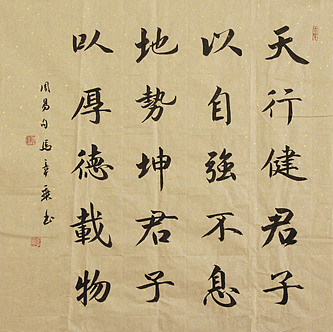 天行健君子
以自強不息
地勢坤君子
以厚德載物
周易句馬